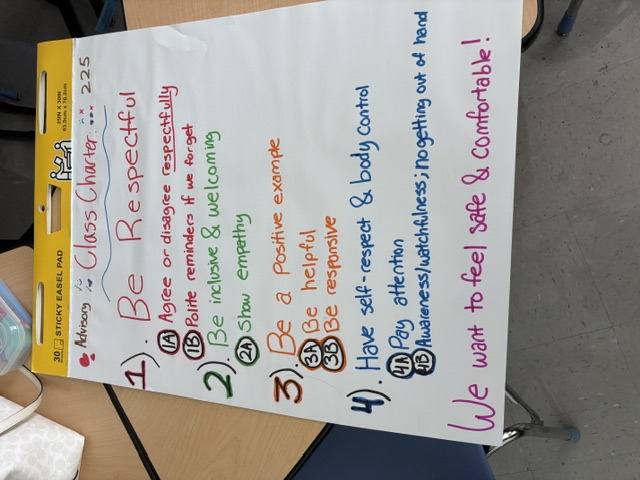 30 STICKY EASEL PAD
25IN X 30IN
63.5cm x 76.2cm
Advisory
Class Charter: 225
1). Be Respectful
1A Agree or disagree respectfully
1B Polite reminders if we forget
2). Be inclusive & welcoming
2A Show empathy
3). Be a Positive example
3A Be helpful
3B Be responsive
4). Have self-respect & body control
4A Pay attention
4B Awareness/watchfulness; no getting out of hand
We want to feel safe & comfortable!